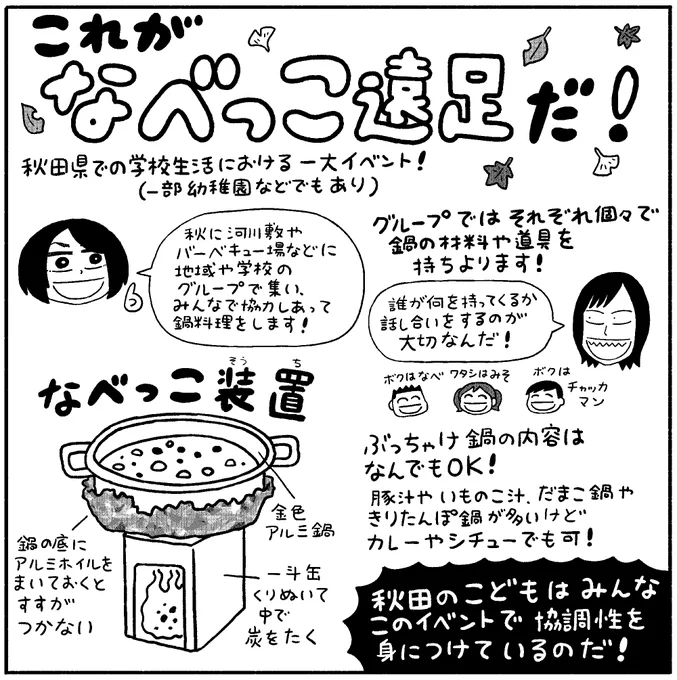 これが
なべっこ遠足だ!
秋田県での学校生活における一大イベント!
(一部幼稚園などでもあり)
秋に河川敷や
バーベキュー場などに
地域や学校の
グループで集い、
みんなで協力しあって
鍋料理をします!
グループではそれぞれ個々で
鍋の材料や道具を
持ちよります!
誰が何を持ってくるか
話し合いをするのが
大切なんだ!
ボクはなべ
ワタシはみそ
ボクは
チャッカ
マン
そう ち
なべっこ装置
金色
アルミ鍋
鍋の底に
アルミホイルを
まいておくと
すすが
つかない
一斗缶
くりぬいて
中で
炭をたく
ぶっちゃけ鍋の内容は
なんでもOK!
豚汁やいものこ汁、だまこ鍋や
きりたんぽ鍋が多いけど
カレーやシチューでも可!
秋田のこどもはみんな
このイベントで協調性を
身につけているのだ!